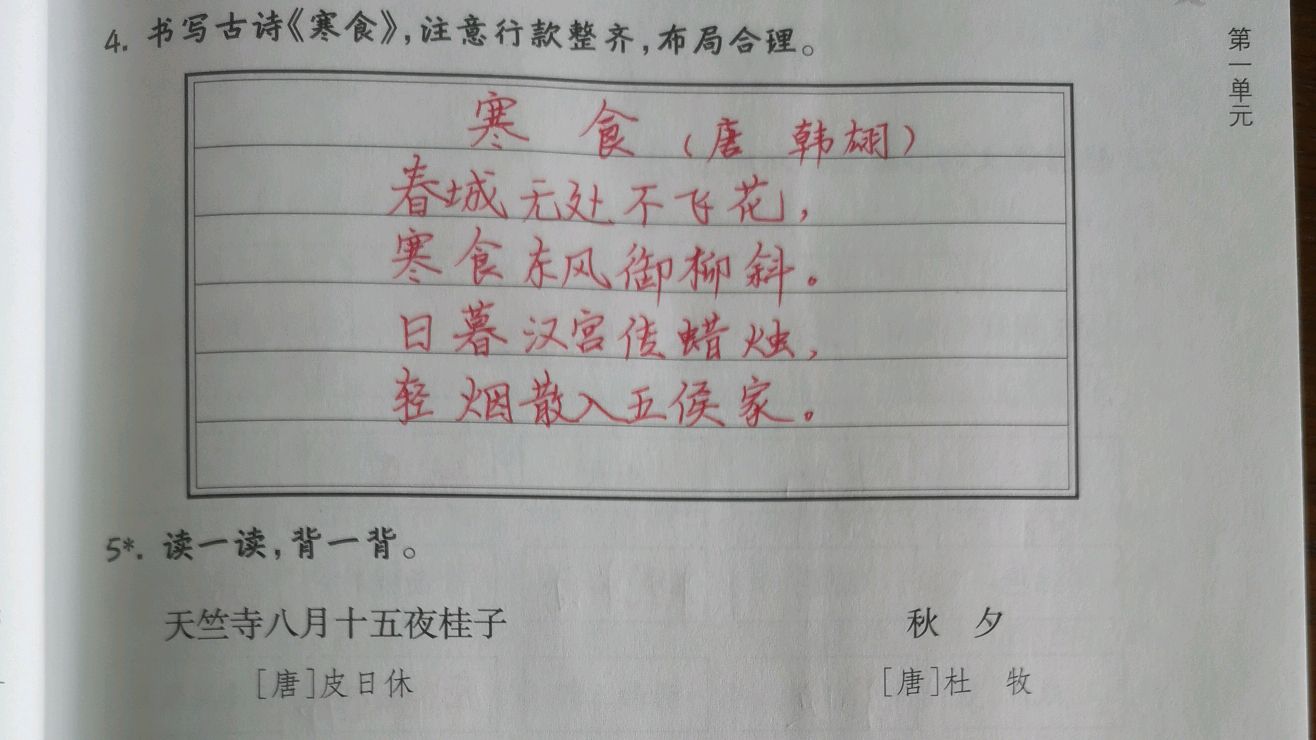 4. 书写古诗《寒食》,注意行款整齐,布局合理。
第一单元
寒 食 (唐 韩翃)
春城无处不飞花,
寒食东风御柳斜。
日暮汉宫传蜡烛,
轻烟散入五侯家。
5*. 读一读,背一背。
天竺寺八月十五夜桂子
[唐]皮日休
秋 夕
[唐]杜 牧